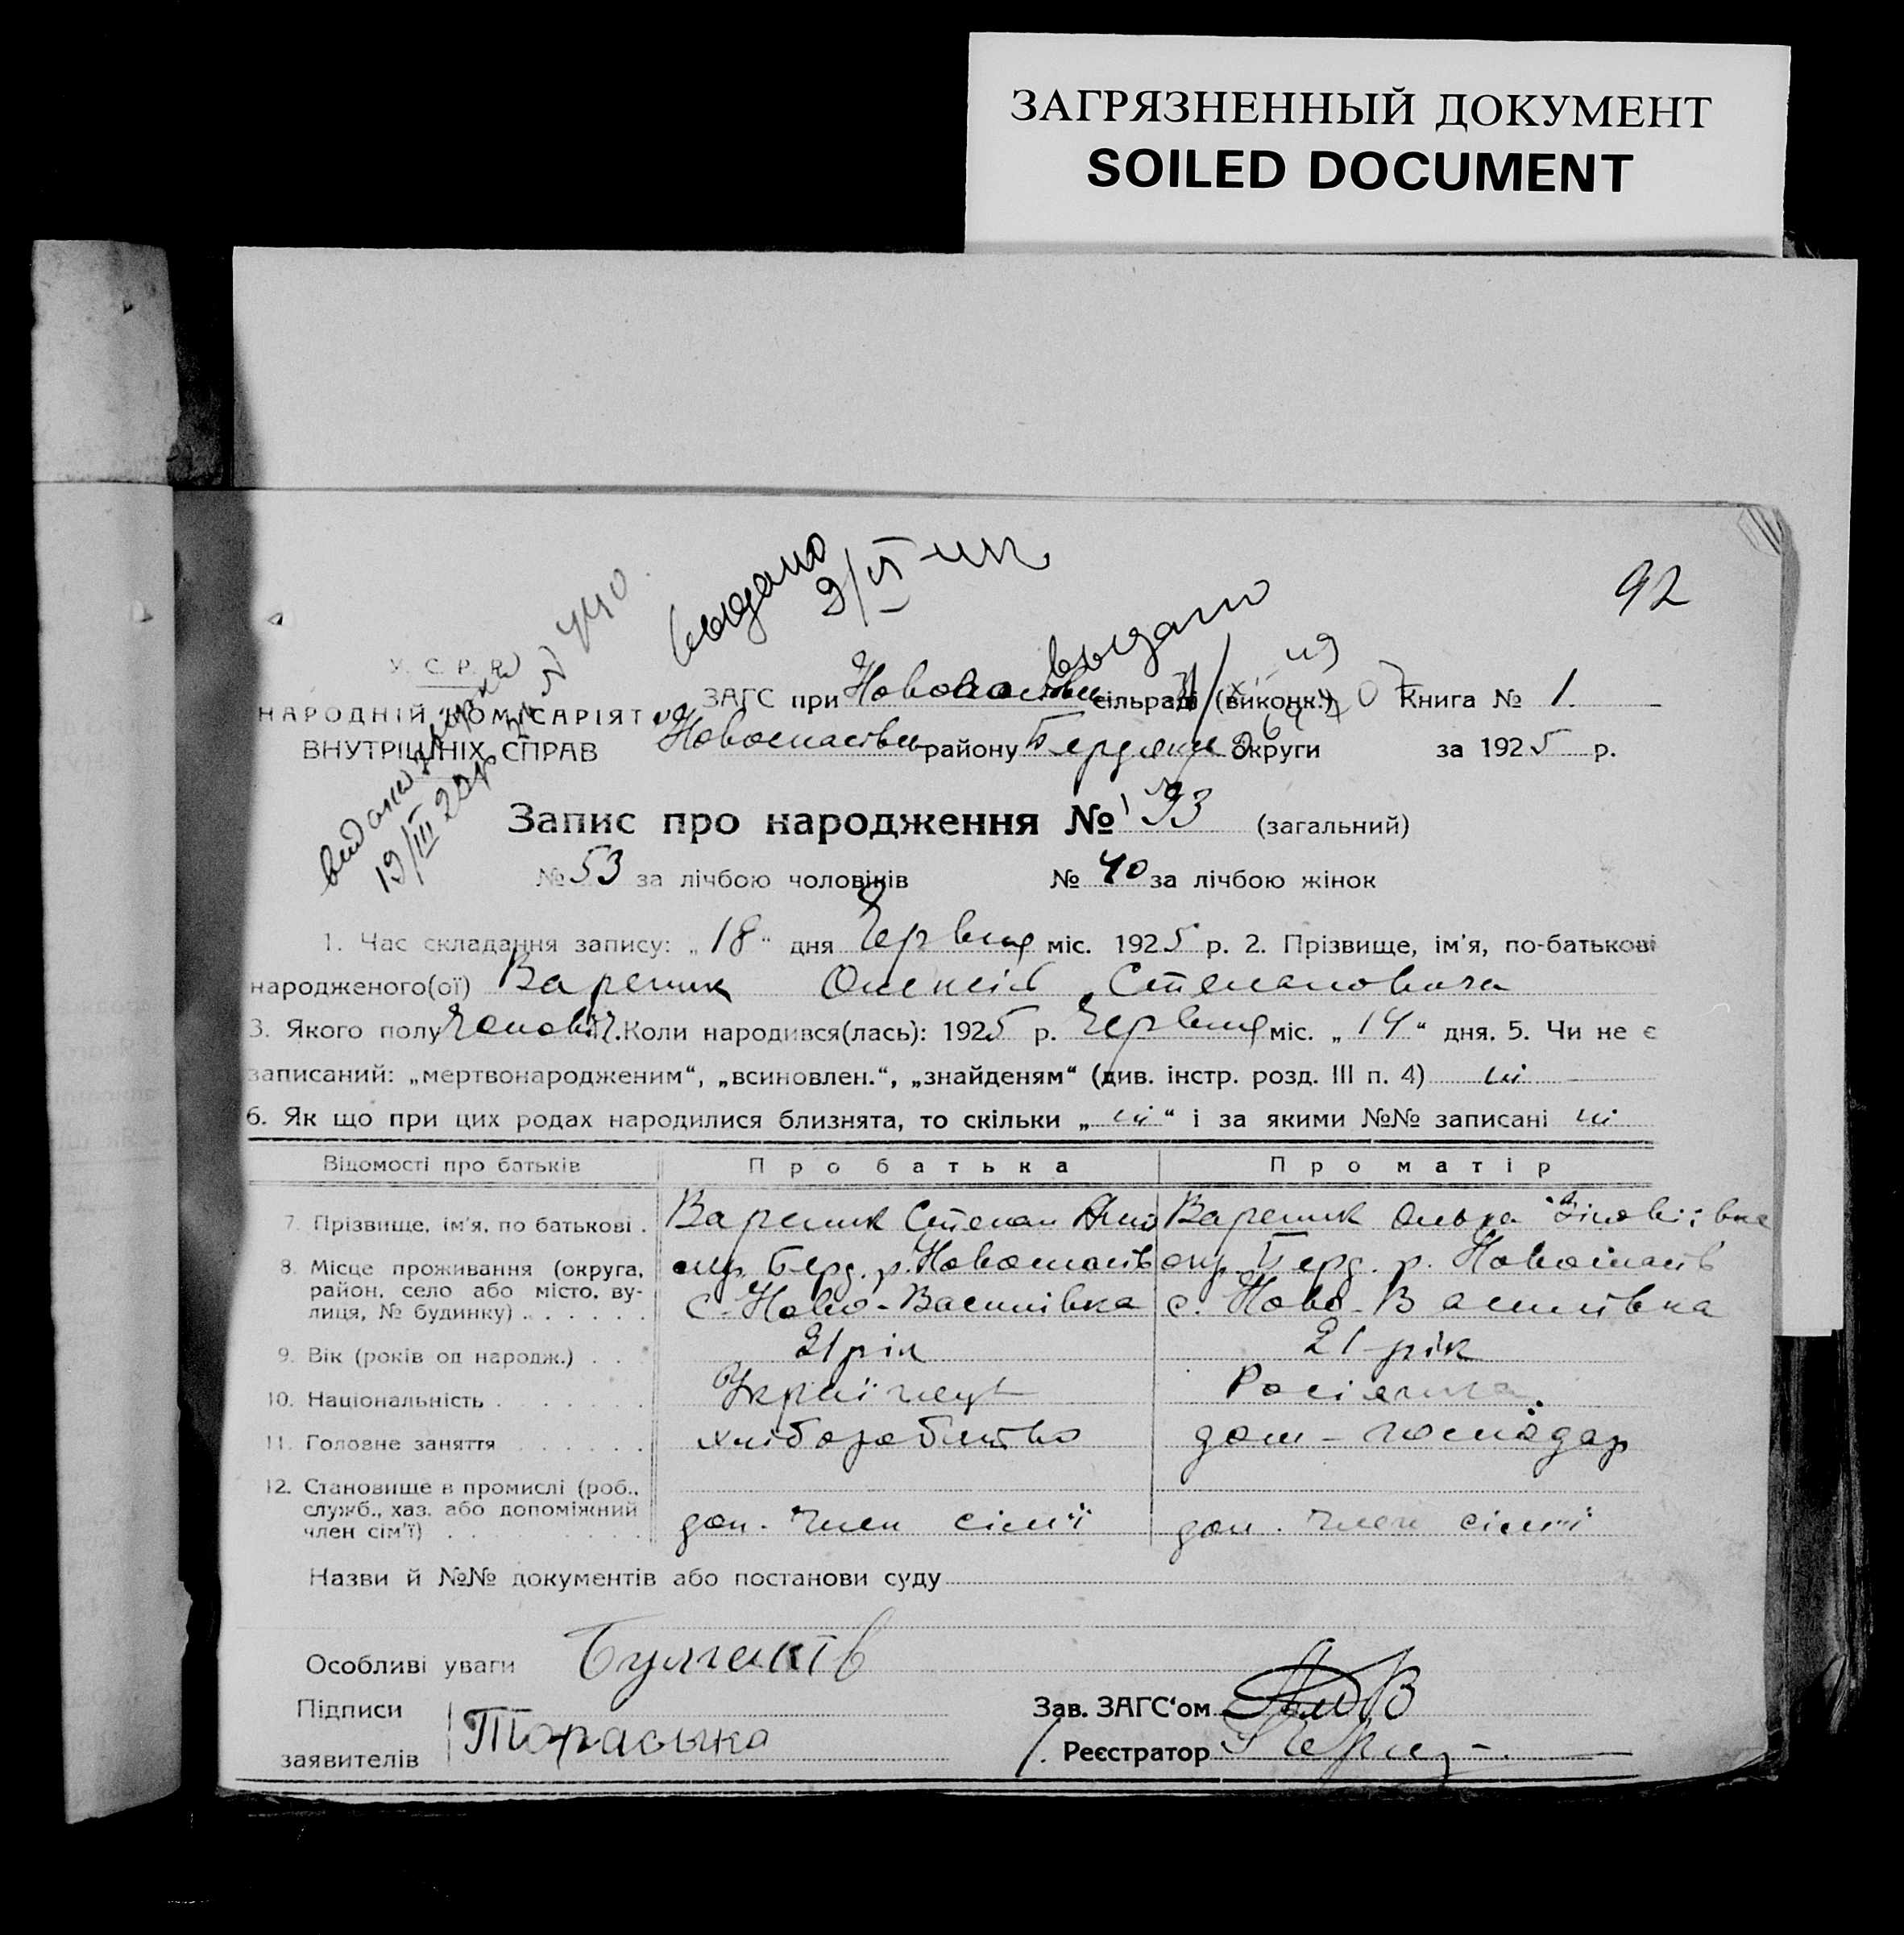 ЗАГРЯЗНЕННЫЙ ДОКУМЕНТ
SOILED DOCUMENT
92
выдано
выдано
У. С. Р. Р.
НАРОДНІЙ КОМІСАРІЯТ
ВНУТРІШНІХ СПРАВ
видано
19/III
N 440
ЗАГС при сільраді (виконк.) Книга № 1.
Новоспаськ району Бердянщ округи за 1925 р.
Запис про народження № 93 (загальний)
№ 53 за лічбою чоловіків № 40 за лічбою жінок
1. Час складання запису: „18" дня Червця міс. 1925 р. 2. Прізвище, ім'я, по-батькові
народженого(ої) Вареник Олексій Степановича
3. Якого полу Чоловіч. Коли народився(лась): 1925 р. Червця міс. „14" дня. 5. Чи не є
записаний: „мертвонародженим", „всиновлен.", „знайденям" (див. інстр. розд. III п. 4) ні
6. Як що при цих родах народилися близнята, то скільки „ні" і за якими №№ записані ні
Відомості про батьків Про батька Про матір
7. Прізвище, ім'я, по батькові . Вареник Степан Вареник Ольга Зіновіївна
8. Місце проживання (округа, район, село або місто, вулиця, № будинку) . . . . . . окр. Берд. р. Новоспасів окр. Берд. р. Новоспасів
с. Ново-Василівка с. Ново-Василівка
9. Вік (років од народж.) . . . 21 рік 21 рік
10. Національність . . . . . . . Українець Росіянка
11. Головне заняття . . . . . . хліборобство дом-господар
12. Становище в промислі (роб., служб., хаз. або допоміжний член сім'ї) . . . . . . . . . доп. член сім'ї доп. член сім'ї
Назви й №№ документів або постанови суду
Особливі уваги
Підписи
заявителів
Зав. ЗАГС'ом
Реєстратор